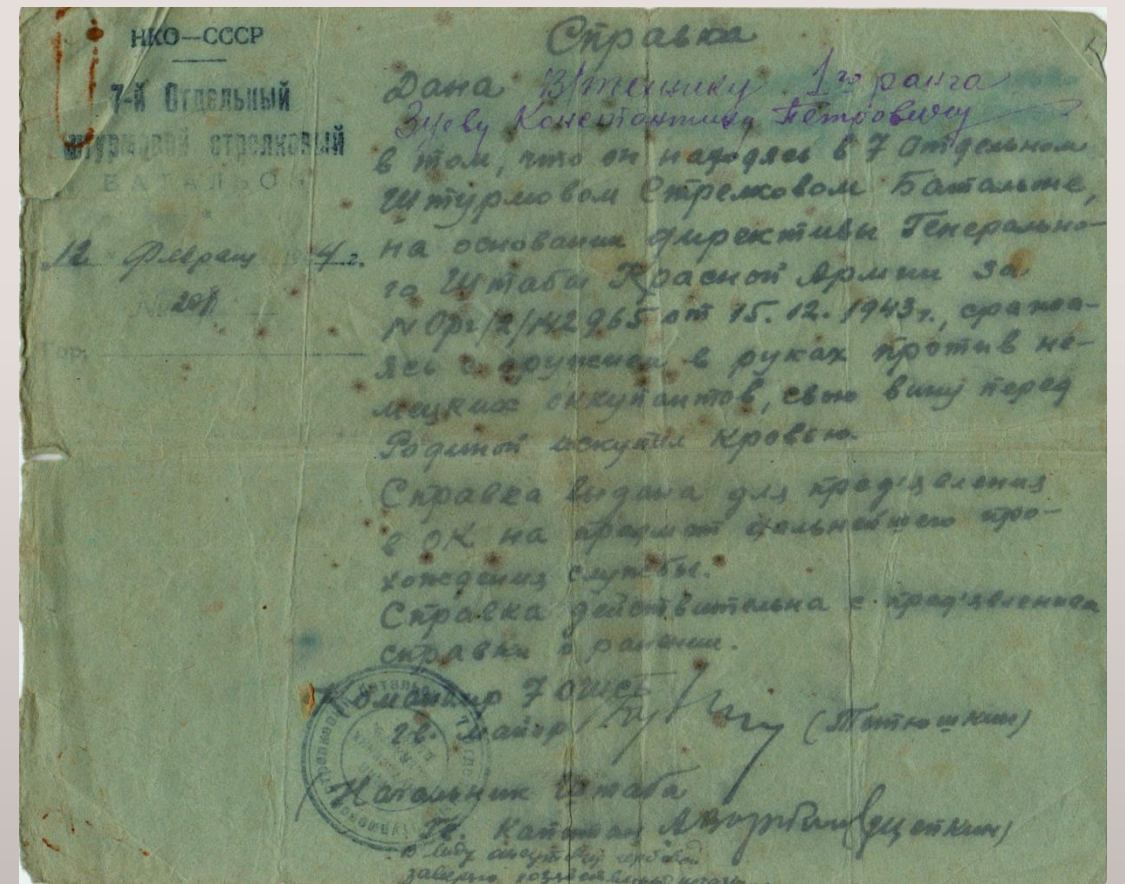 НКО—СССР
7-й Отдельный
штурмовой стрелковый
БАТАЛЬОН
"12" Февраля 194 4 г.
№ 201
Гор.
Справка
Дана В/технику 1го ранга
Зуеву Константину Петровичу
в том, что он находясь в 7 отдельном
Штурмовом Стрелковом Батальоне,
на основании директивы Генерально-
го Штаба Красной Армии за
№ Орг/2/142965 от 15.12.1943г., сража-
ясь с оружием в руках против не-
мецких оккупантов, свою вину перед
Родиной искупил кровью.
Справка выдана для предъявления
в ОК на предмет дальнейшего про-
хождения службы.
Справка действительна с предъявлением
справки о ранении.
Командир 7 ОШСБ
Гв. майор (Тютюшкин)
Начальник Штаба
Гв. Капитан (Щепкин)